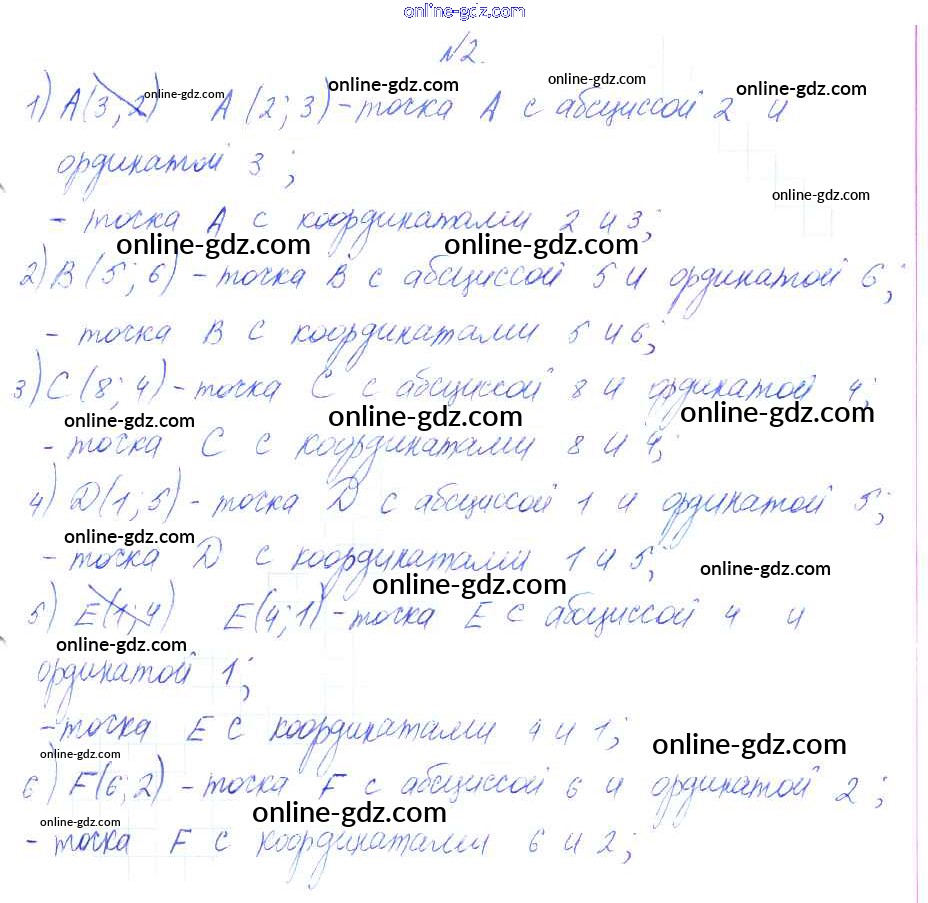 online-gdz.com
№2.
1) A(3; 2) online-gdz.com A (2; 3) - точка A с абсциссой 2 и
online-gdz.com online-gdz.com online-gdz.com
ординатой 3 ;
online-gdz.com
- точка A с координатами 2 и 3;
online-gdz.com online-gdz.com
2) B (5; 6) - точка B с абсциссой 5 и ординатой 6;
- точка B с координатами 5 и 6;
3) C (8; 4) - точка C с абсциссой 8 и ординатой 4;
online-gdz.com online-gdz.com online-gdz.com
- точка C с координатами 8 и 4;
4) D(1; 5) - точка D с абсциссой 1 и ординатой 5;
online-gdz.com
- точка D с координатами 1 и 5;
online-gdz.com online-gdz.com
5) E(1; 4) E(4; 1) - точка E с абсциссой 4 и
online-gdz.com
ординатой 1;
- точка E с координатами 4 и 1;
online-gdz.com online-gdz.com
6) F(6; 2) - точка F с абсциссой 6 и ординатой 2 ;
online-gdz.com online-gdz.com
- точка F с координатами 6 и 2;
online-gdz.com online-gdz.com